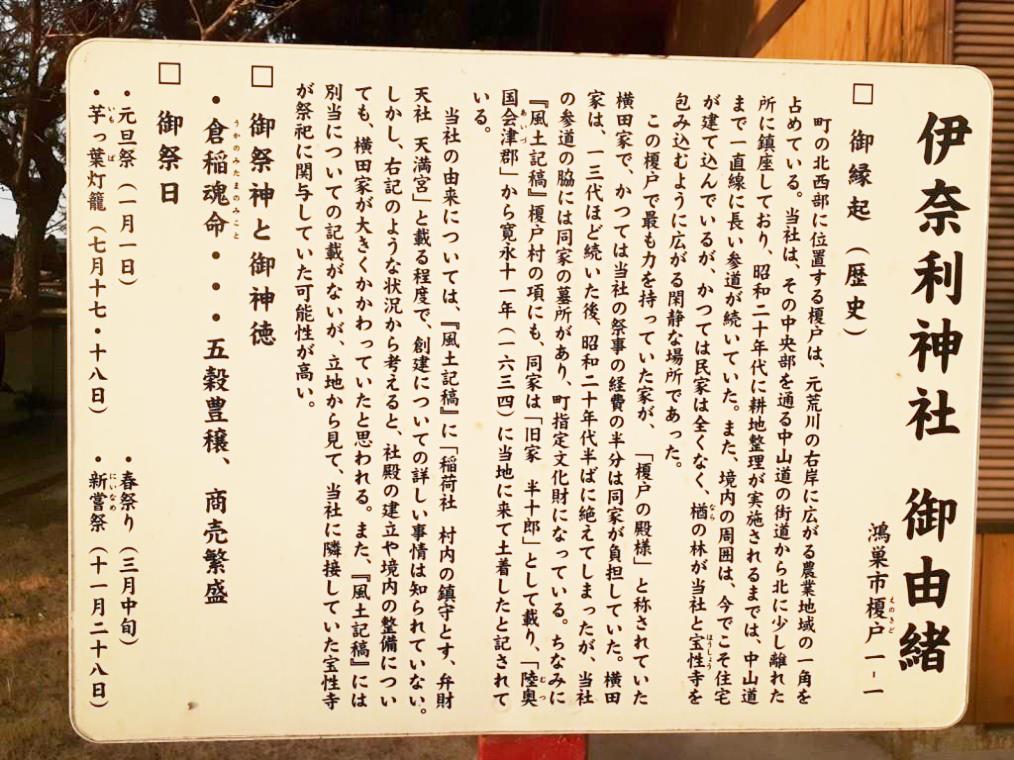 伊奈利神社 御由緒
鴻巣市榎戸一-一
□ 御縁起（歴史）
町の北西部に位置する榎戸は、元荒川の右岸に広がる農業地域の一角を
占めている。当社は、その中央部を通る中山道の街道から北に少し離れた
所に鎮座しており、昭和二十年代に耕地整理が実施されるまでは、中山道
まで一直線に長い参道が続いていた。また、境内の周囲は、今でこそ住宅
が建て込んでいるが、かつては民家は全くなく、楢の林が当社と宝性寺を
包み込むように広がる閑静な場所であった。
この榎戸で最も力を持っていた家が、「榎戸の殿様」と称されていた
横田家で、かつては当社の祭事の経費の半分は同家が負担していた。横田
家は、一三代ほど続いた後、昭和二十年代半ばに絶えてしまったが、当社
の参道の脇には同家の墓所があり、町指定文化財になっている。ちなみに
『風土記稿』榎戸村の項にも、同家は「旧家 半十郎」として載り、「陸奥
国会津郡」から寛永十一年（一六三四）に当地に来て土着したと記されて
いる。
当社の由来については、『風土記稿』に「稲荷社 村内の鎮守とす、弁財
天社 天満宮」と載る程度で、創建についての詳しい事情は知られていない。
しかし、右記のような状況から考えると、社殿の建立や境内の整備につい
ても、横田家が大きくかかわっていたと思われる。また、『風土記稿』には
別当についての記載がないが、立地から見て、当社に隣接していた宝性寺
が祭祀に関与していた可能性が高い。
□ 御祭神と御神徳
・倉稲魂命・・・五穀豊穣、商売繁盛
□ 御祭日
・元旦祭（一月一日） ・春祭り（三月中旬）
・芋っ葉灯籠（七月十七・十八日） ・新嘗祭（十一月二十八日）